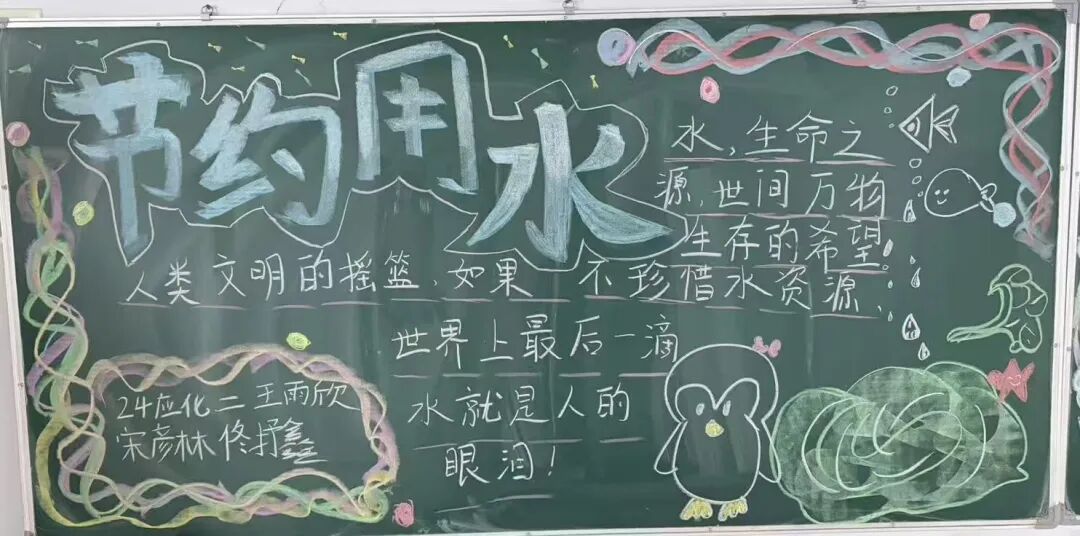 节约用水
水,生命之
源,世间万物
生存的希望。
人类文明的摇篮,如果不珍惜水资源、
世界上最后一滴
水就是人的
眼泪!
24应化二 王雨欣
宋彦林 佟抒鑫